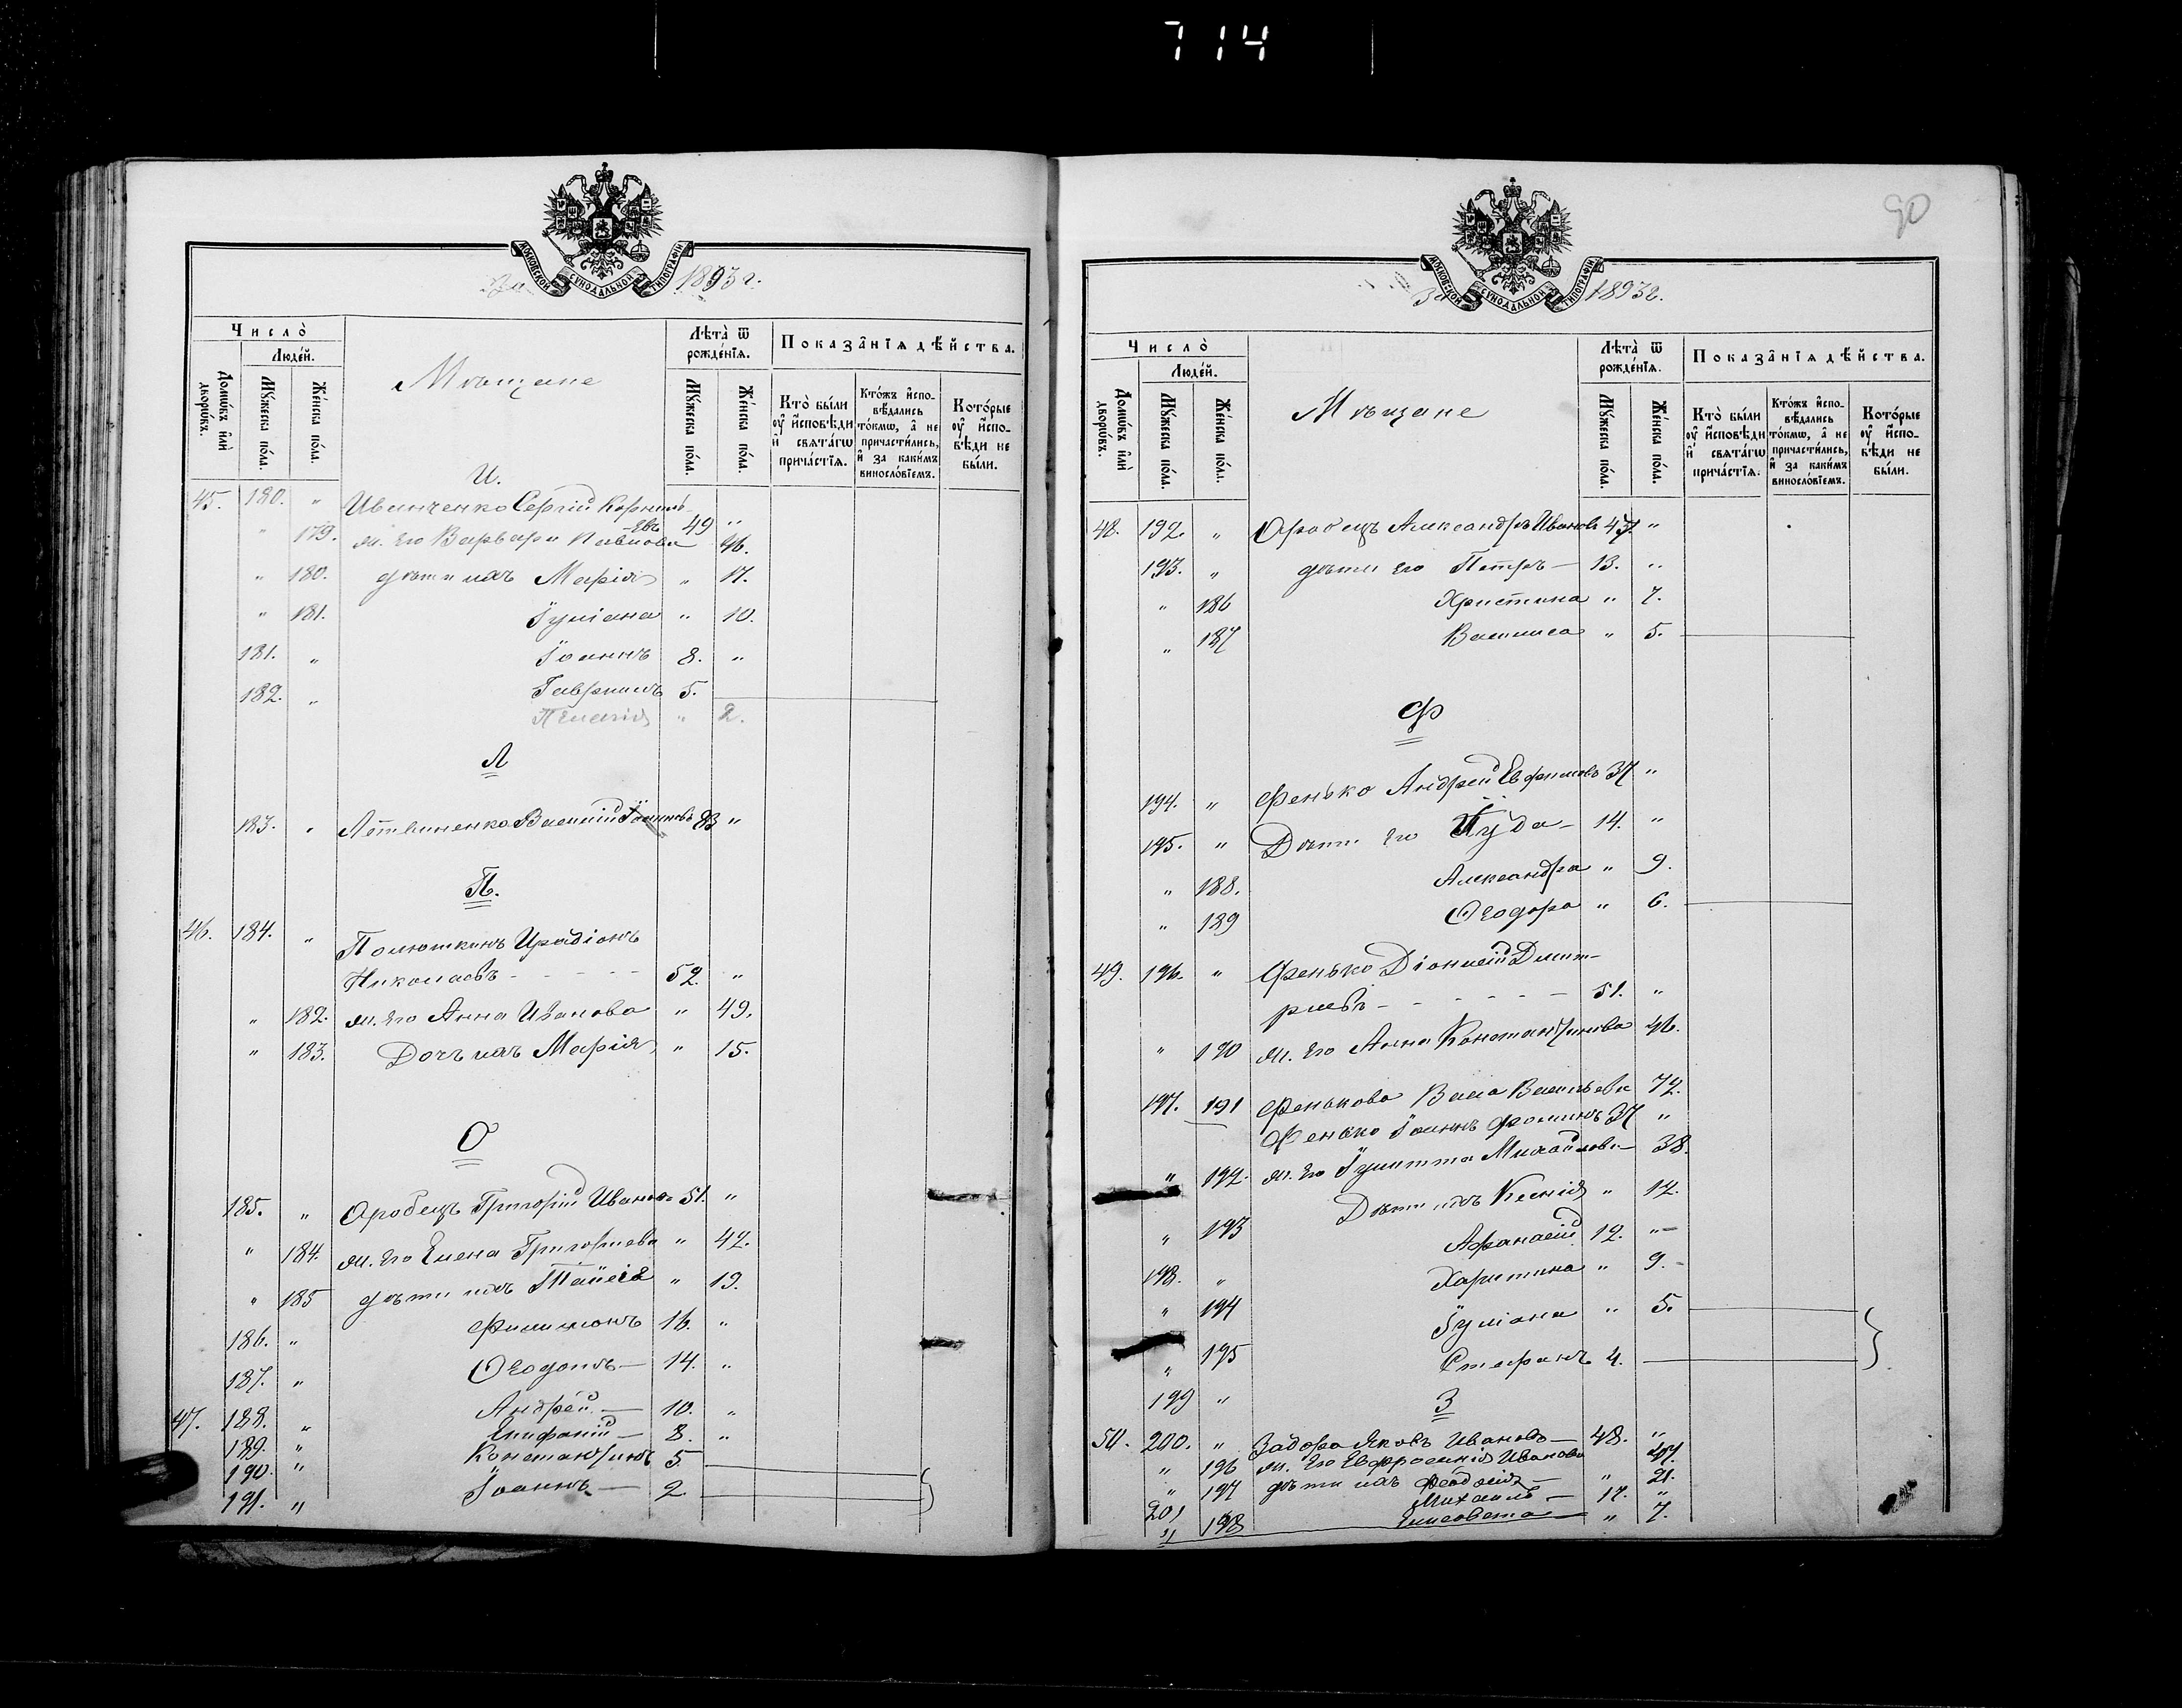 714
МОСКОВСКОЙ СУНОДАЛЬНОЙ ТИПОГРАФІИ
За 1893 г.
Число̀
Людéй.
Домѡ́въ и҆лѝ дворѡ́въ.
Мꙋ́жеска по́ла.
Же́нска по́ла.
Мѣщане
Лѣта̀ ѿ рожде́нїѧ.
Мꙋ́жеска по́ла.
Же́нска по́ла.
Показа̂нїѧ дѣ́йства.
Кто̀ бы́ли ᲂу҆ и҆сповѣ́ди и҆ свѧта́гѡ причáстїѧ.
Кто́жъ и҆спо-вѣ́дались то́кмѡ, а҆ не причасти́лись, и҆ за каки́мъ винослóвїемъ.
Кото́рые ᲂу҆ и҆спо-вѣ́ди не бы́ли.
И.
45. 180. " Иванченко Сергій Корнилъ-
евъ 49 "
" 179. ж. его Варвара Павлова 46.
" 180. дѣти ихъ Марія " 17.
" 181. Іуліана " 10.
181. " Іоаннъ 8. "
182. " Гавриилъ 5.
Пелагія " 2.
Л
183. " Литвиненко Василій 83 "
П.
46. 184. " Полюткинъ Иродіонъ
Николаевъ - - - - - 52. "
" 182. ж. его Анна Иванова " 49.
" 183. Дочь ихъ Марія " 15.
О
185. " Оробецъ Григорій Ивановъ 51. "
" 184. ж. его Елена Григорьева " 42.
" 185 дѣти ихъ Таисія " 19.
186. " Филимонъ 16. "
187. " Ѳеодотъ — 14. "
47. 188. " Андрей — 10. "
189. " Епифаній — 8. "
190. " Константинъ 5
191. " Іоаннъ — 2.
90
МОСКОВСКОЙ СУНОДАЛЬНОЙ ТИПОГРАФІИ
За 1893 г.
Число̀
Людéй.
Домѡ́въ и҆лѝ дворѡ́въ.
Мꙋ́жеска по́ла.
Же́нска по́ла.
Мѣщане
Лѣта̀ ѿ рожде́нїѧ.
Мꙋ́жеска по́ла.
Же́нска по́ла.
Показа̂нїѧ дѣ́йства.
Кто̀ бы́ли ᲂу҆ и҆сповѣ́ди и҆ свѧта́гѡ причáстїѧ.
Кто́жъ и҆спо-вѣ́дались то́кмѡ, а҆ не причасти́лись, и҆ за каки́мъ винослóвїемъ.
Кото́рые ᲂу҆ и҆спо-вѣ́ди не бы́ли.
48. 192. " Оробецъ Александръ Ивановъ "
193. " дѣти его Петръ — 13. "
" 186 Христина " 7.
" 187 Василиса " 5.
Ф
194. " Фенько Андрей Евфимовъ 37 "
195. " Дѣти его Іуда — 14. "
" 188. Александра " 9.
" 189 Ѳеодора " 6.
49. 196. " Фенько Діонисій Димит-
ріевъ - - - - - 51. "
" 190 ж. его Анна Константинова 46.
197. 191 Фенькова Васса Васильева 72.
Фенько Іоаннъ Фоминъ 37 "
" 192. ж. его Іулитта Михайлова — 38.
" 193 Дѣти ихъ Ксенія " 17.
Афанасій 12. "
198. " Харитина " 9.
" 194 Іуліана " 5.
" 195 Стефанъ 4.
199 "
З
50. 200. " Задора Яковъ Ивановъ — 48. "
" 196 ж. его Евфросинія Иванова 47.
" 197 дѣти ихъ Феодосія — " 21.
201 Михаилъ — 17. "
" 198 Елисавета — " 7.